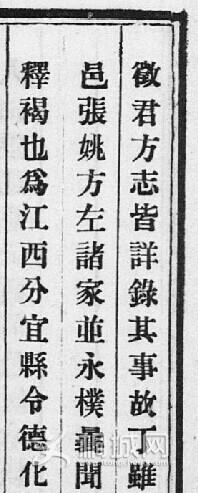 徵君方志皆詳錄其事故丁雖
邑張姚方左諸家並永樸聞
釋褐也爲江西分宜縣令德化